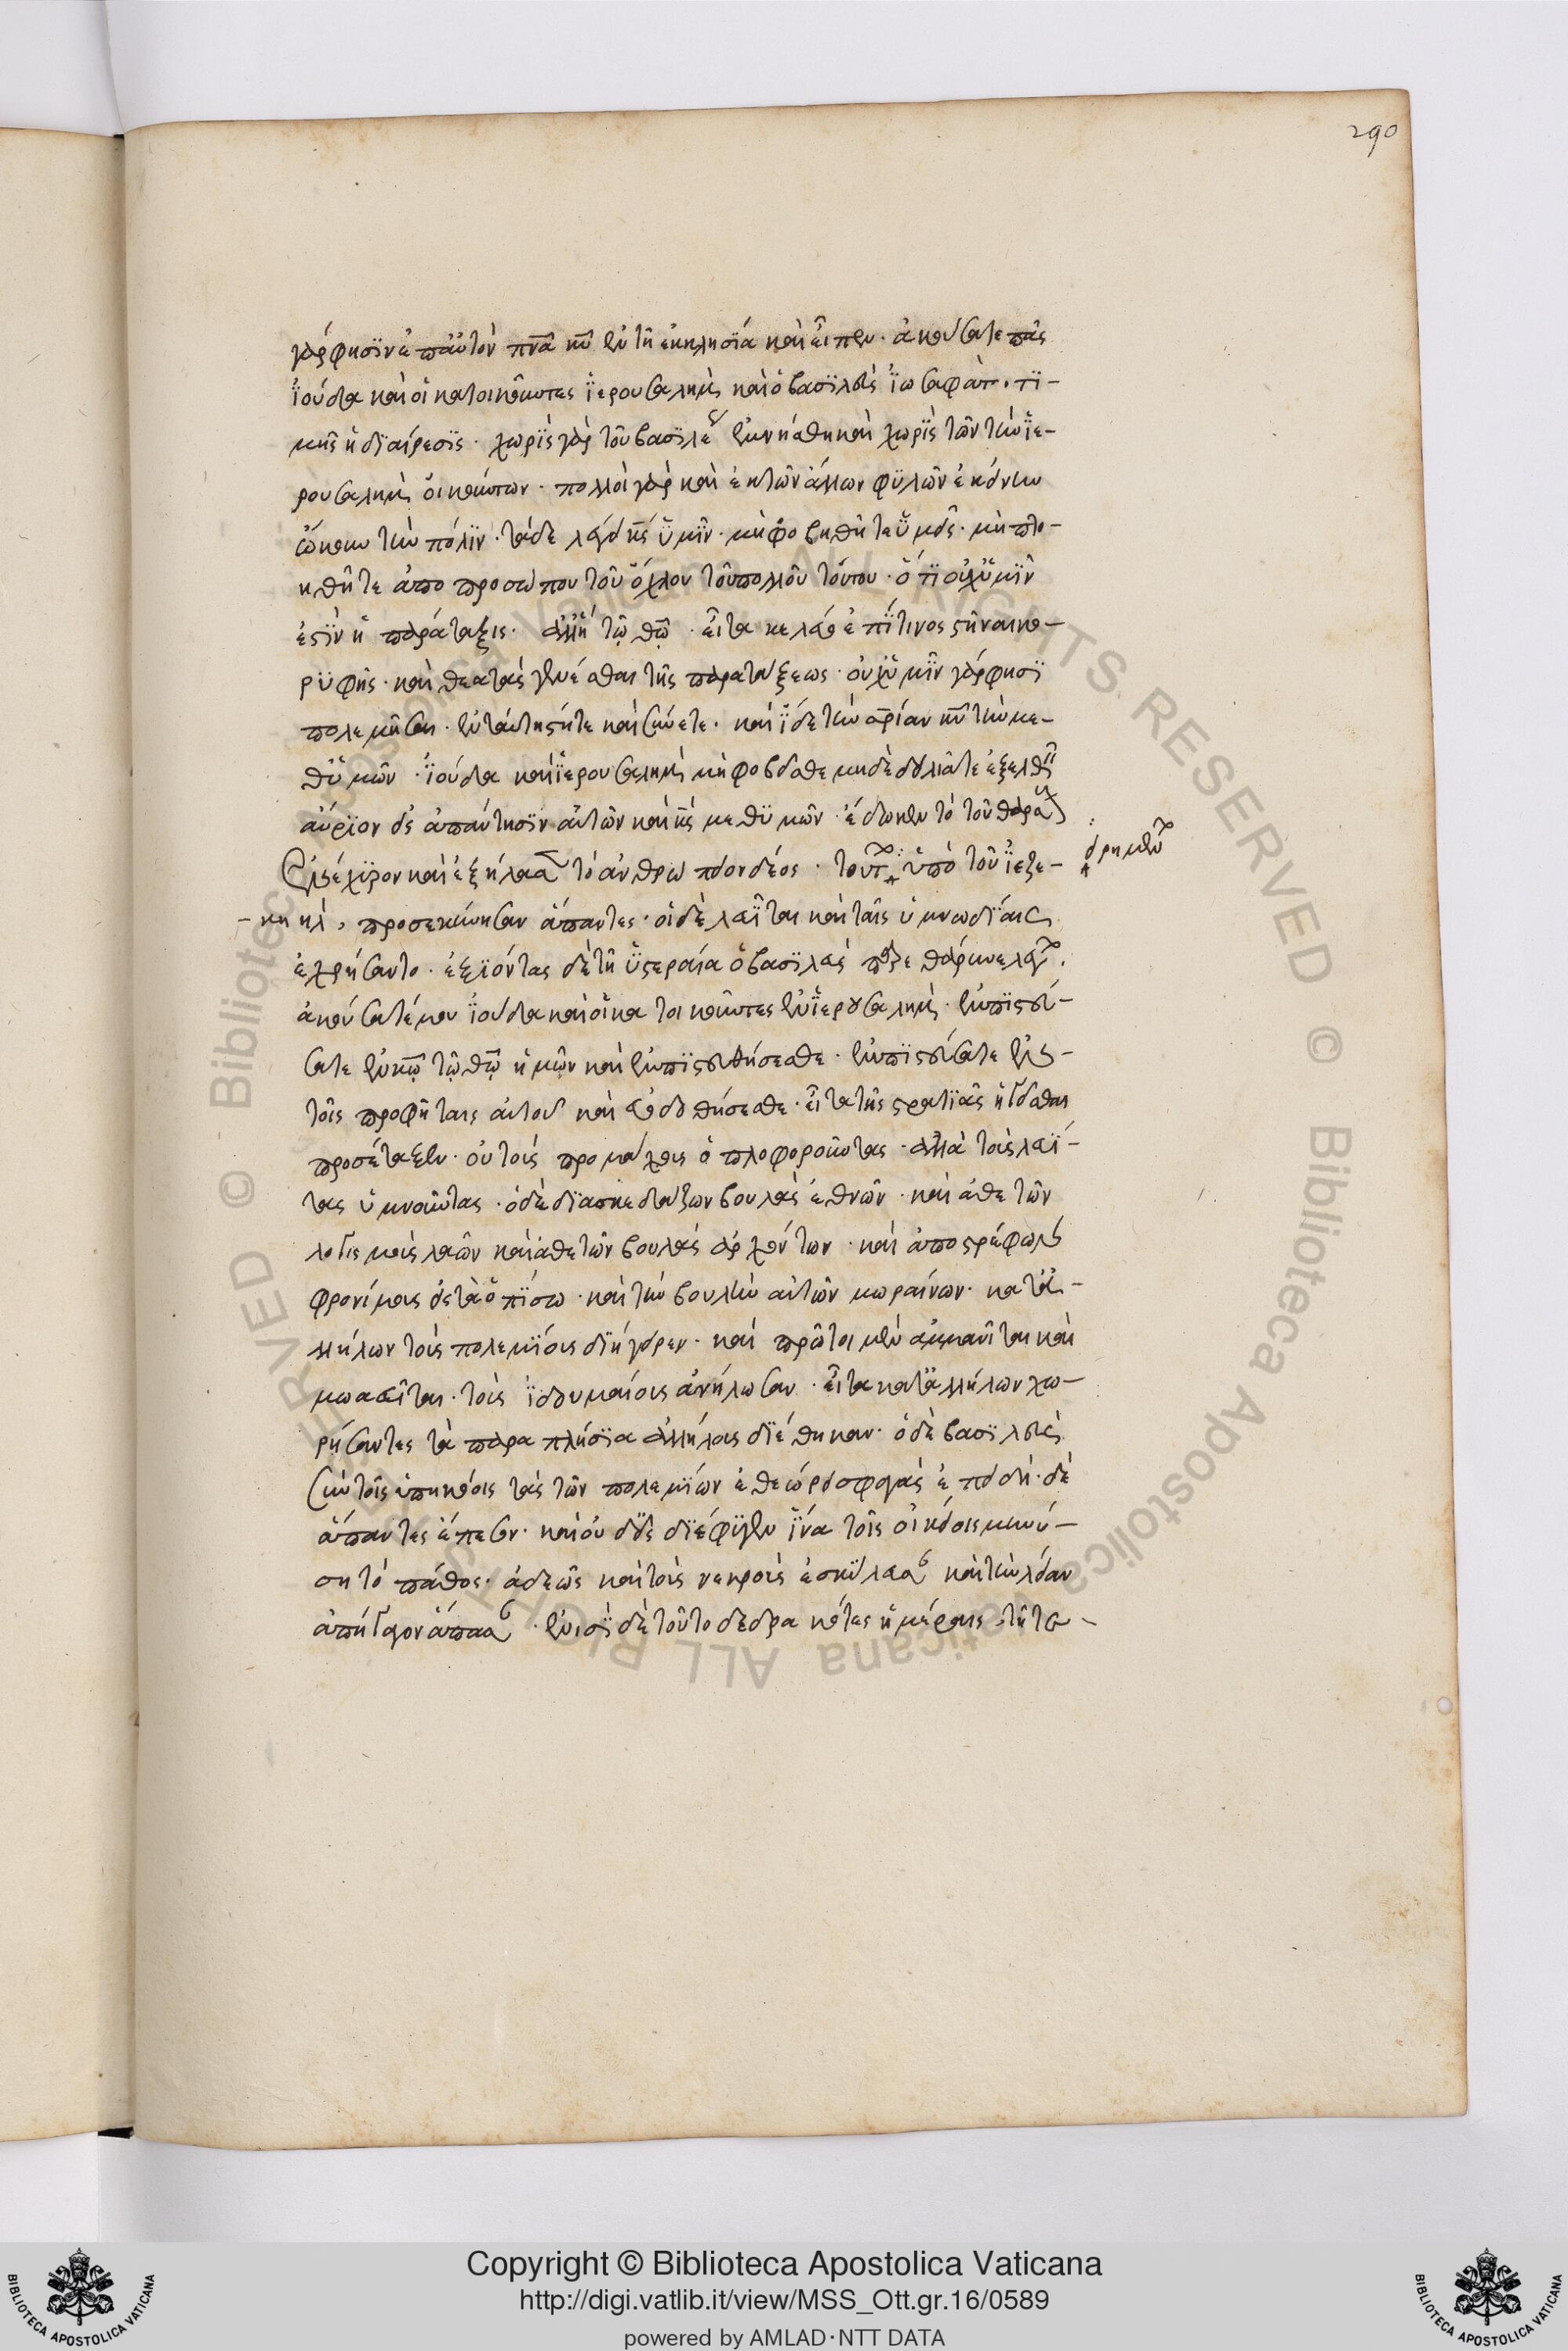 290
γάρ φησϊν ἐπαὐτὸν πνα κυ ἐν τῆ ἐκκλησϊά καὶ εἶπεν · ἀκούσατε πᾶς
ἰούδα καὶ οἱ κατοικοῦντες ἱερουσαλὴμ καὶ ὁ βασϊλεὺς ἰωσαφὰτ · τϊ-
μὴ ἡ διαίρεσϊς · χωρὶς γὰρ τοῦ βασϊλέως ἐμνήσθη καὶ χωρὶς τῶν τὴν ἱε-
ρουσαλὴμ οἰκούντων · πολλοὶ γὰρ καὶ ἐκ τῶν ἄλλων φϋλῶν ἐκείνην
ᾤκουν τὴν πόλϊν · τάδε λέγει κς ὑμῖν · μὴ φοβηθῆτε ὑμεῖς · μὴ πτο-
ηθῆτε ἀπο προσώπου τοῦ ὄχλου τοῦ πολλοῦ τούτου · ὅτϊ οὐχ ὑμῖν
ἐστϊν ἡ παράταξις · ἀλλ ἢ τῷ θῷ · εἶτα κελεύει ἐπί τινος στῆναι κο-
ρϋφῆς · καὶ θεατὰς γενέσθαι τῆς παρατάξεως · οὐχ ὑμῖν γάρ φησϊ
πολεμῆσαι · ἐν ταύτη στῆτε καὶ σύνετε · καὶ ἴδετε τὴν σρίαν κυ τὴν με-
θ ὑμῶν · ἰούδα καὶ ἱερουσαλὴμ μὴ φοβεῖσθε μηδὲ δειλιᾶτε ἐξελθεῖν
αὔρϊον εἰς ἀπάντησϊν αὐτῶν καὶ κς μεθ ὑμῶν · ἔδωκεν τὸ τοῦ θάρσους
ἐνέχϋρον καὶ ἐξήλασε τὸ ἀνθρώπειον δέος · τούτων ὑπὸ τοῦ ἰεζε-
εἰρημένων
κιηλ, προσεκύνησαν ἅπαντες · οἱ δὲ λευῖται καὶ ταῖς ὑμνωδίαις
ἐχρήσαντο · ἐξϊόντας δὲ τῆ ὑστεραία ὁ βασϊλεὺς
ἀκούσατέ μου ἰούδα καὶ οἱ κατοικοῦντες ἐν ἱερουσαλὴμ · ἐμπιστεύ-
σατε ἐν κῳ τῷ θῷ ἡμῶν καὶ ἐμπϊστευθήσεσθε · ἐμπϊστεύσατε ἐν
τοῖς προφήταις αὐτοῦ καὶ εὐοδωθήσεσθε · εἶτα τῆς στρατϊᾶς ἡγεῖσθαι
προσέταξεν · οὐ τοὺς προμάχους ὁπλοφοροῦντας · ἀλλὰ τοὺς λευί-
τας ὑμνοῦντας · ὁ δὲ δϊασκεδάζων βουλὰς ἐθνῶν · καὶ ἀθετῶν
λογισμοὺς λαῶν καὶ ἀθετῶν βουλὰς ἀρχόντων · καὶ ἀποστρέφων
φρονίμους εἰς τὰ ὀπϊσω · καὶ τὴν βουλὴν αὐτῶν μωραίνων · κατἀ-
λλήλων τοὺς πολεμίους δϊήγειρεν · καὶ πρῶτοι μὲν ἀμμανῖται καὶ
μωαβῖται · τοὺς ἰδουμαίους ἀνήλωσαν · εἶτα κατἀλλήλων χω-
ρήσαντες τὰ παραπλήσϊα ἀλλήλους δϊέθηκαν · ὁ δὲ βασϊλεὺς
σὺν τοῖς ὑπηκόοις τὰς τῶν πολεμίων ἐθεώρει σφαγάς ἐπειδὴ · δὲ
ἅπαντες ἔπεσον · καὶ οὐδεὶς δϊέφϋγεν ἵνα τοῖς οἰκείοις μηνύ-
ση τὸ πάθος · ἀδεῶς καὶ τοὺς νεκροὺς ἐσκύλευσαν καὶ τὴν λείαν
ἀπήγαγον ἅπασαν · ἐν τρισϊ δὲ τοῦτο δεδρακότες ἡμέραις · τῆ τε-
Copyright © Biblioteca Apostolica Vaticana
http://digi.vatlib.it/view/MSS_Ott.gr.16/0589
powered by AMLAD·NTT DATA